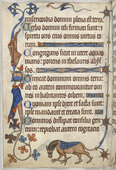 misericordia domini plena est terra
Verbo domini celi firmati sunt
spiritu oris eius omnis virtus eorum
Congregans sicut in utre aquas
maris: ponens in thesauris abyss
Timeat dominum omnis terra
ab eo autem commoveantur omnes
inhabitantes orbem
Quoniam ipse dixit et facta sunt
ipse mandavit et creata sunt
Dominus dissipat consilia
reprobat autem